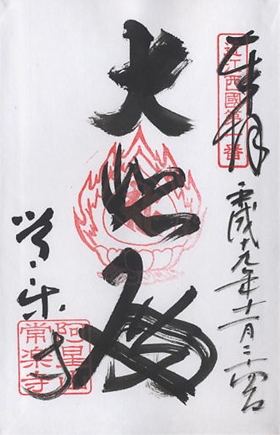 奉拝
近江西國第一番
平成十九年十一月二十四日
大悲
常楽寺
阿星山
常楽寺